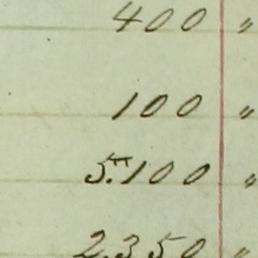 400 "
100 "
5.100 "
2.350 "